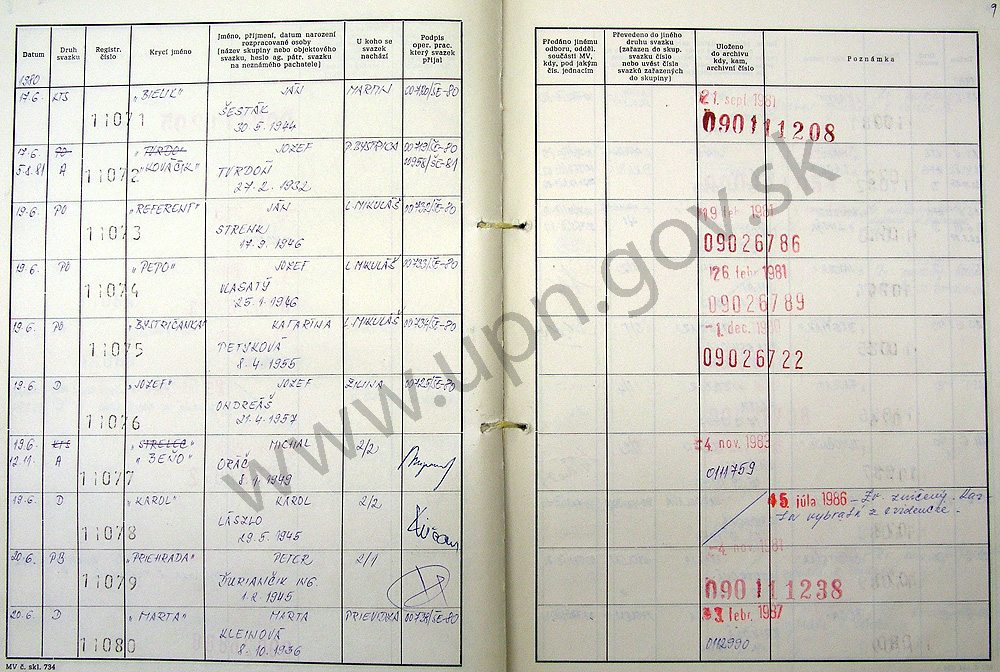 9
Datum
Druh
svazku
Registr.
číslo
Krycí jméno
Jméno, příjmení, datum narození
rozpracované osoby
(název skupiny nebo objektového
svazku, heslo ag. pátr. svazku
na neznámého pachatele)
U koho se
svazek
nachází
Podpis
oper. prac.
který svazek
přijal
Předáno jinému
odboru, odděl.
součásti MV,
kdy, pod jakým
čís. jednacím
Převedeno do jiného
druhu svazku
(zařazen do skup.
svazku číslo
nebo uvést čísla
svazků zařazených
do skupiny)
Uloženo
do archivu
kdy, kam,
archivní číslo
Poznámka
1980
17.6. KTS "BIELIK" JÁN MARTIN 00730/ŠE-80 21. sept. 1981
11071 ŠESTÁK 090111208
30.5.1944
17.6. PO JOZEF P. BYSTRICA
5.1.81 A "KOVÁČIK"
11072 TVRDOŇ
27.2.1932
19.6. PO "REFERENT" JÁN L. MIKULÁŠ 19 feb. 1981
11073 09026786
17.9.1946
19.6. PO "PEPO" JOZEF L. MIKULÁŠ 00733/ŠE-80 26. febr. 1981
11074 VLASATÝ 09026789
25.1.1946
19.6. PO "BYSTRIČANKA" KATARÍNA L. MIKULÁŠ
11075 PETYKOVÁ 09026722
8.4.1955
19.6. D "JOZEF" JOZEF ŽILINA 00725/ŠE-80
11076 ONDREÁŠ
21.4.1957
19.6. KTS "STRELEC" MICHAL 2/2 -4. nov. 1983
12.11. A "BEŇO"
11077 ORÁČ 0111759
8.1.1949
19.6. D "KAROL" KAROL 2/2 15. júla 1986 – Zv. zničený.
11078 LÁSZLO vybraté z evidencie.
29.5.1945
20.6. PB "PRIEHRADA" PETER 2/1 -4. nov. 1981
11079 ĎURIANČIK ING. 090111238
1.2.1945
20.6. D "MARTA" MARTA PRIEVIDZA 00738/ŠE-80 3. febr. 1987
11080 KLEINOVÁ 0112990
8.10.1936
MV č. skl. 734
www.upn.gov.sk